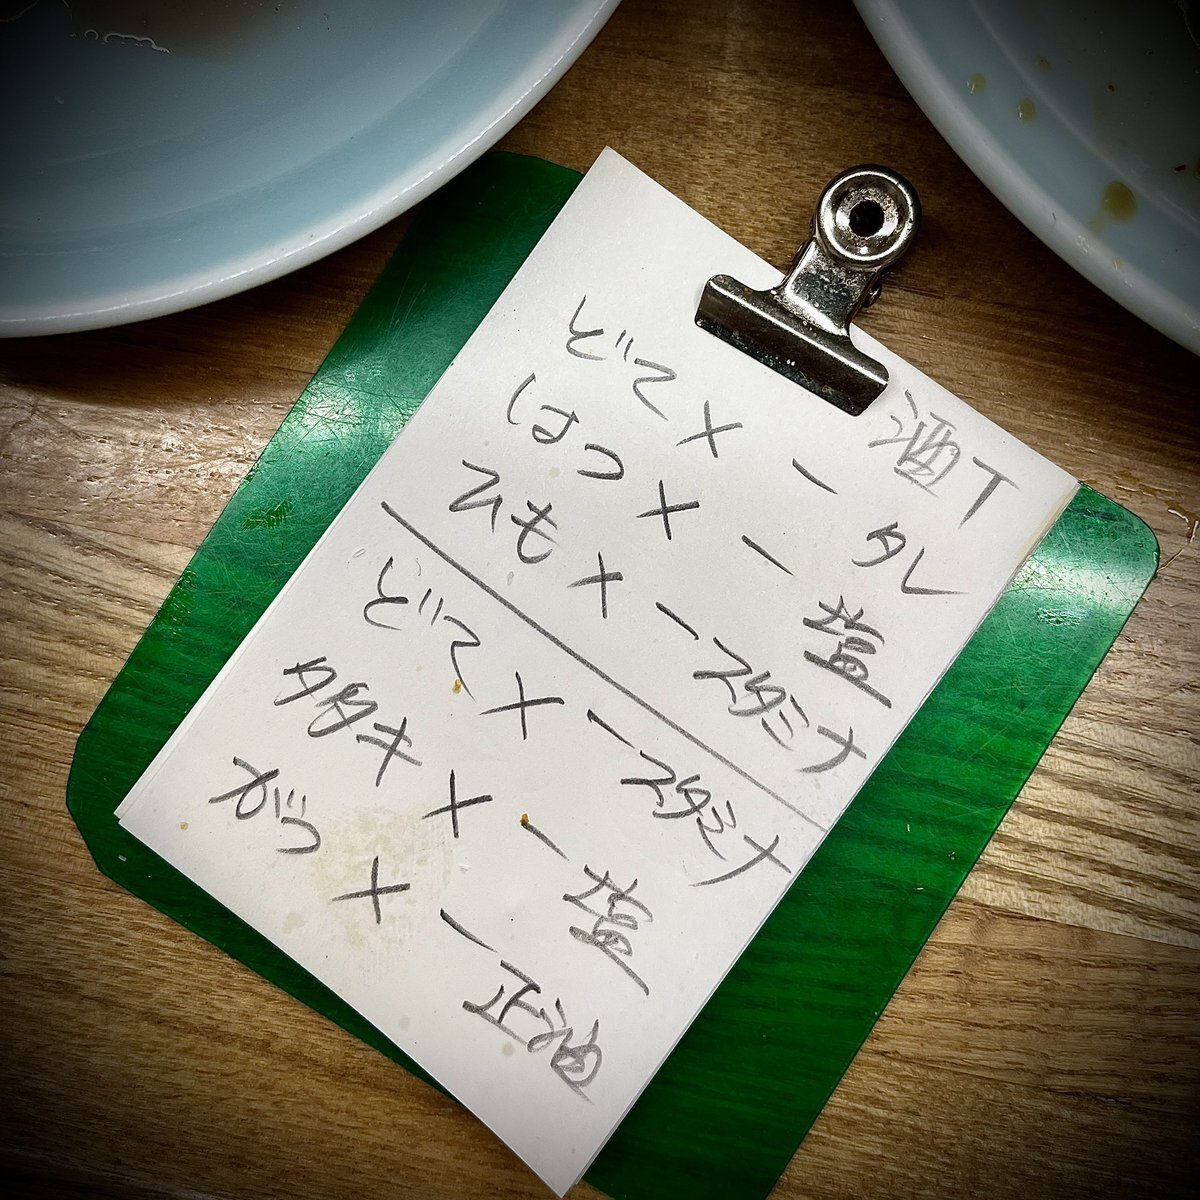 酒T
どて×一 タレ
はつ×一 塩
ひも×一 スタミナ
どて×一 スタミナ
タタキ×一 塩
がつ×一 正油